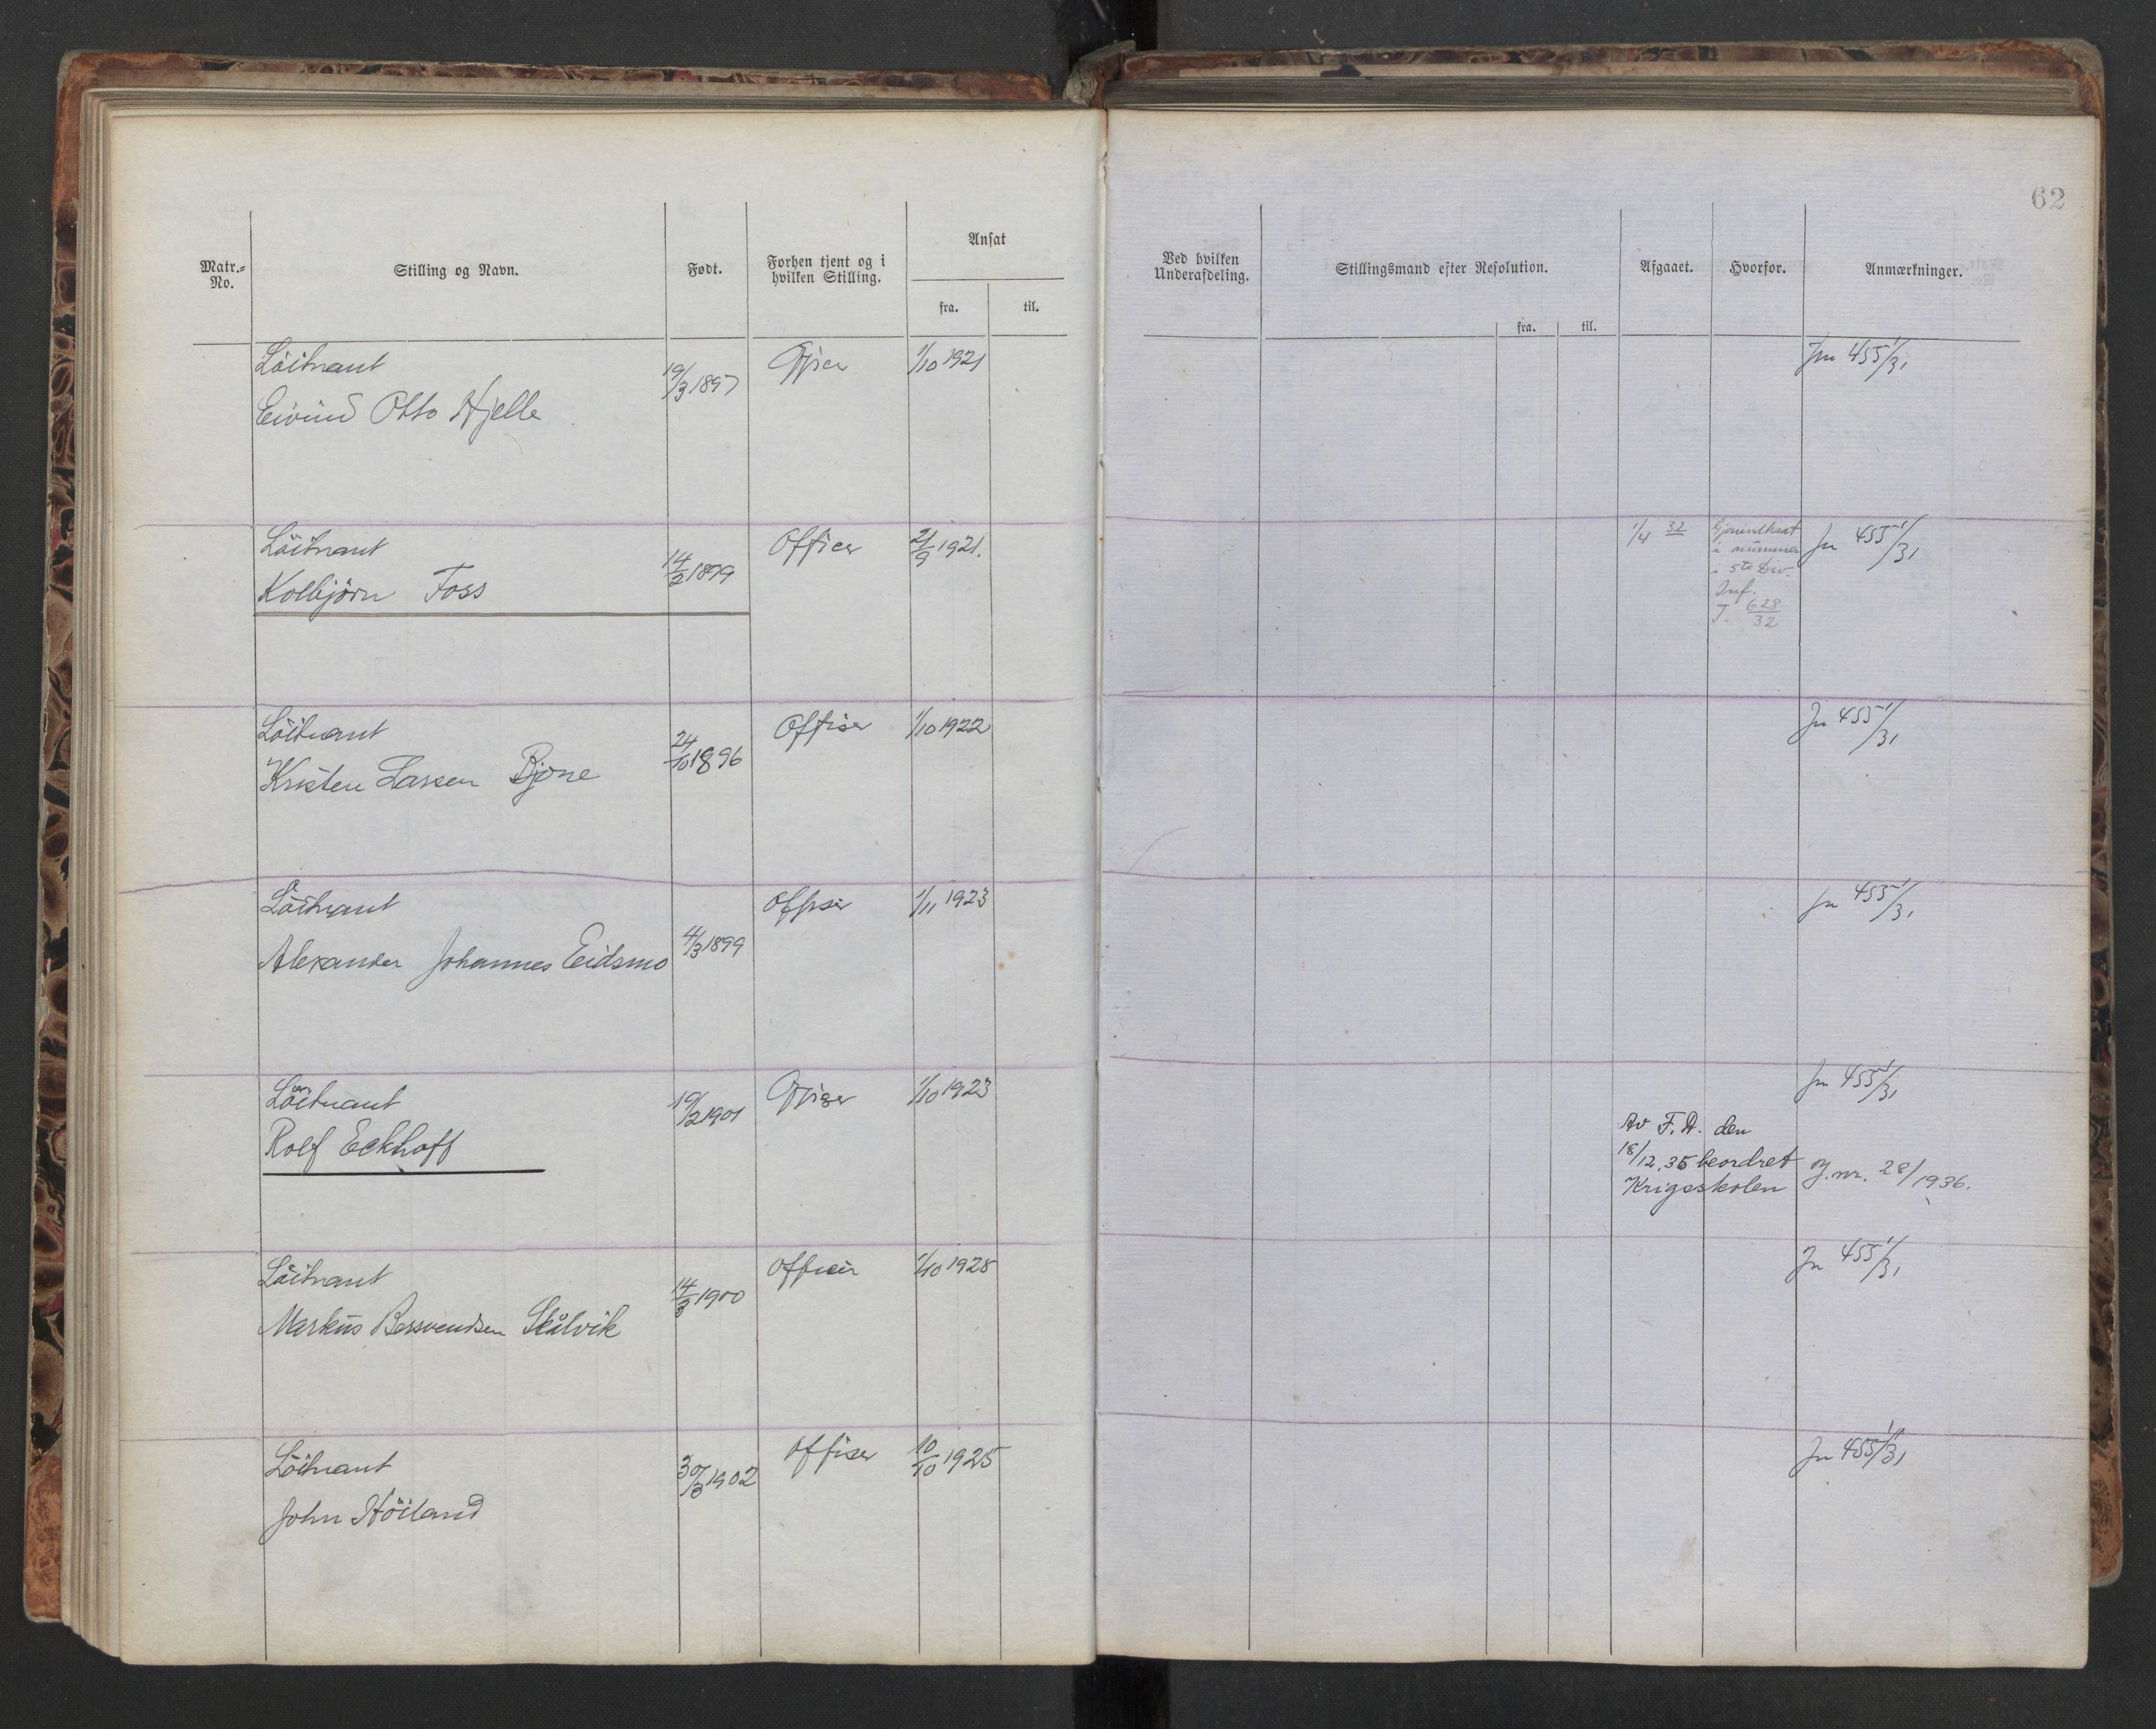 62
Matr.-
No.
Stilling og Navn.
Født.
Forhen tjent og i
hvilken Stilling.
Ansat
fra.
til.
Ved hvilken
Underafdeling.
Stillingsmand efter Resolution.
fra.
til.
Afgaaet.
Hvorfor.
Anmærkninger.
Löitnant
Eivind Otto Hjelle
19/3 1897
Officer
1/10 1921
Jn 455 1/31
Löitnant
Kolbjörn Foss
14/2 1899
Officer
21/9 1921.
1/4 32
i nummer
i 5te Div.
Inf.
J. 628/32
Jn 455 1/31
Löitnant
Kristen Larsen Bjöne
24/10 1896
Offiser
1/10 1922
Jn 455 1/31
Löitnant
Alexander Johannes Eidsmo
4/3 1899
Offiser
1/11 1923
Jn 455 1/31
Löitnant
Rolf Eckhoff
19/2 1901
Offiser
1/10 1923
Jn 455 1/31
Av F.D. den
18/12.35 beordret
Krigsskolen
J.nr. 28/1936.
Löitnant
Markus Bersvendsen Skålvik
14/3 1900
Officer
1/10 1925
Jn 455 1/31
Löitnant
John Höiland
30/3 1902
Offiser
10/10 1925
Jn 455 1/31